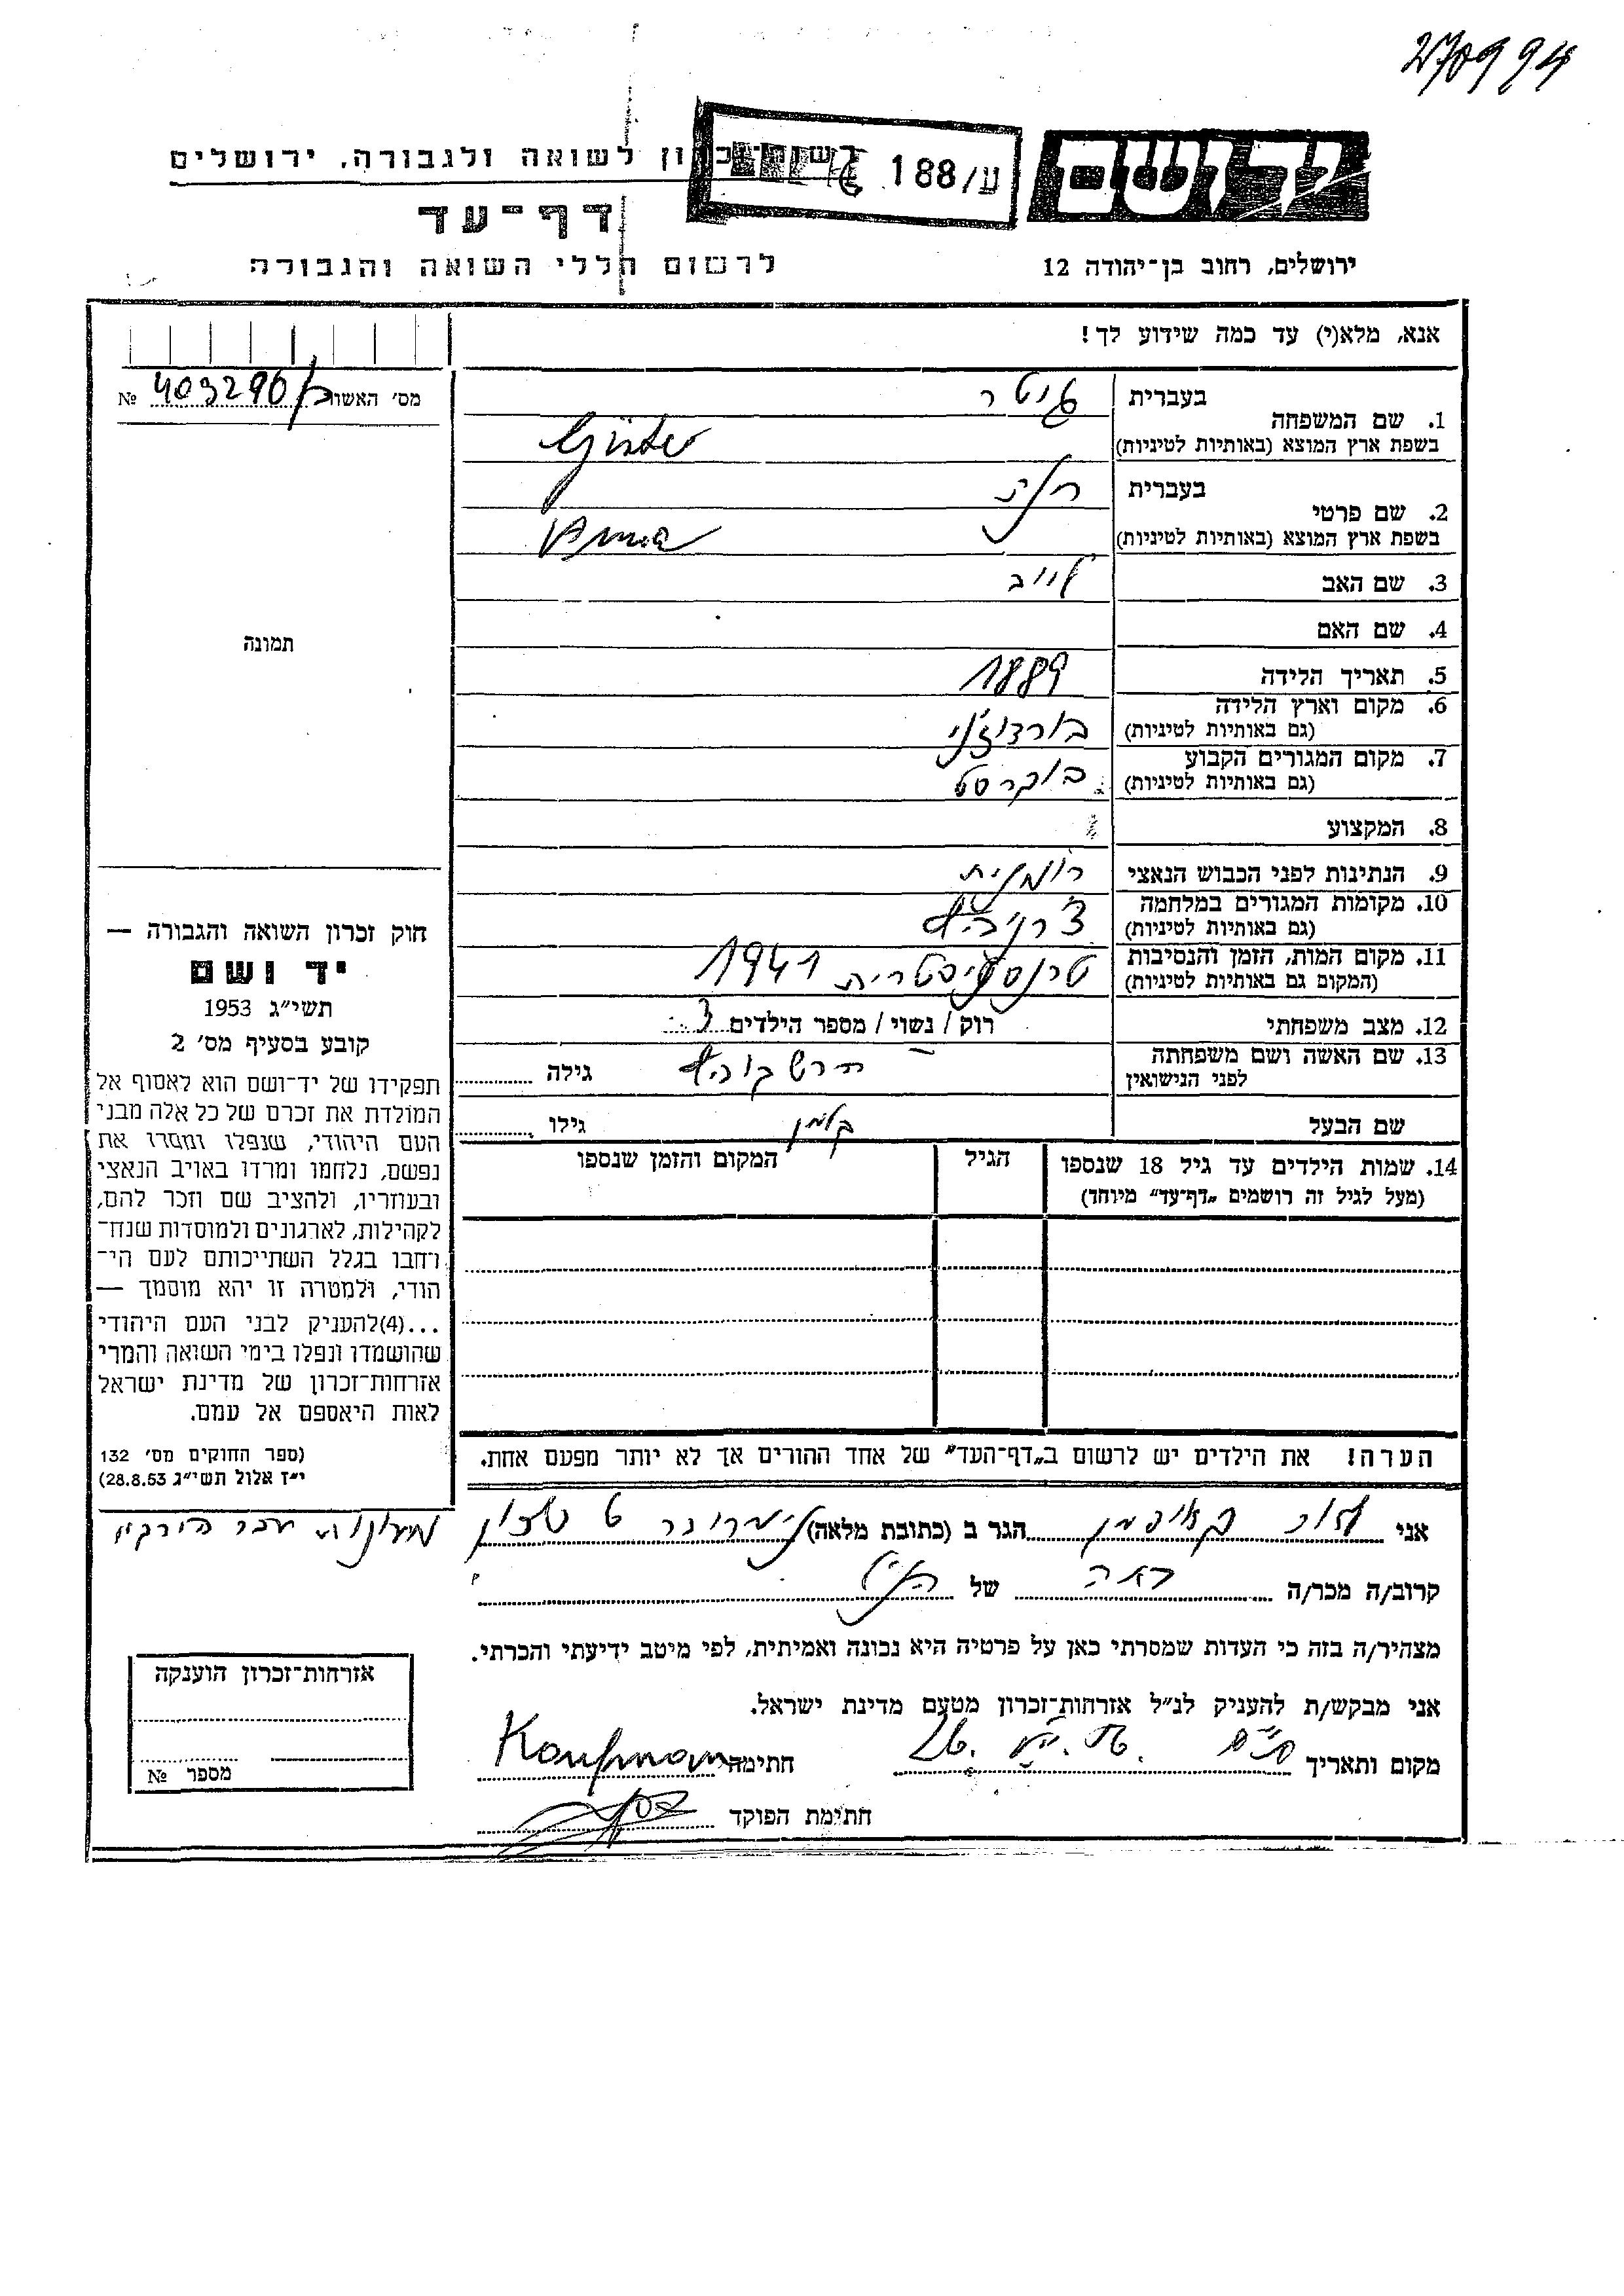 270994
ע/188
רשות-זכרון לשואה ולגבורה, ירושלים
דף-עד
לרשום חללי השואה והגבורה
ירושלים, רחוב בן-יהודה 12
אנא, מלא(י) עד כמה שידוע לך!
מס׳ האשור № 403290
1. שם המשפחה
בעברית גיטר
בשפת ארץ המוצא (באותיות לטיניות)
2. שם פרטי
בעברית חנה
בשפת ארץ המוצא (באותיות לטיניות) Anna
3. שם האב לייב
4. שם האם
5. תאריך הלידה 1889
6. מקום וארץ הלידה
(גם באותיות לטיניות) בורדוז׳ני
7. מקום המגורים הקבוע
(גם באותיות לטיניות) בוקרסט
8. המקצוע
9. הנתינות לפני הכבוש הנאצי רומנית
10. מקומות המגורים במלחמה
(גם באותיות לטיניות)
11. מקום המות, הזמן והנסיבות
(המקום גם באותיות לטיניות) 1941
12. מצב משפחתי רוק / נשוי / מספר הילדים 3
13. שם האשה ושם משפחתה
לפני הנישואין גילה
שם הבעל קלמן גילו
14. שמות הילדים עד גיל 18 שנספו הגיל המקום והזמן שנספו
(מעל לגיל זה רושמים „דף-עד״ מיוחד)
הערה! את הילדים יש לרשום ב„דף-העד״ של אחד ההורים אך לא יותר מפעם אחת.
תמונה
חוק זכרון השואה והגבורה —
יד ושם
תשי״ג 1953
קובע בסעיף מס׳ 2
תפקידו של יד-ושם הוא לאסוף אל
המולדת את זכרם של כל אלה מבני
העם היהודי, שנפלו ומסרו את
נפשם, נלחמו ומרדו באויב הנאצי
ובעוזריו, ולהציב שם וזכר להם,
לקהילות, לארגונים ולמוסדות שנח-
רחבו בגלל השתייכותם לעם הי-
הודי, ולמטרה זו יהא מוסמך —
...(4)להעניק לבני העם היהודי
שהושמדו ונפלו בימי השואה והמרי
אזרחות-זכרון של מדינת ישראל
לאות היאספם אל עמם.
(ספר החוקים מס׳ 132
י״ז אלול תשי״ג 28.8.53)
אני קאופמן הגר ב (כתובת מלאה)
קרוב/ה מכר/ה של הנ״ל
מצהיר/ה בזה כי העדות שמסרתי כאן על פרטיה היא נכונה ואמיתית, לפי מיטב ידיעתי והכרתי.
אני מבקש/ת להעניק לנ״ל אזרחות-זכרון מטעם מדינת ישראל.
מקום ותאריך חתימה Kaufman
חתימת הפוקד
אזרחות-זכרון הוענקה
מספר №